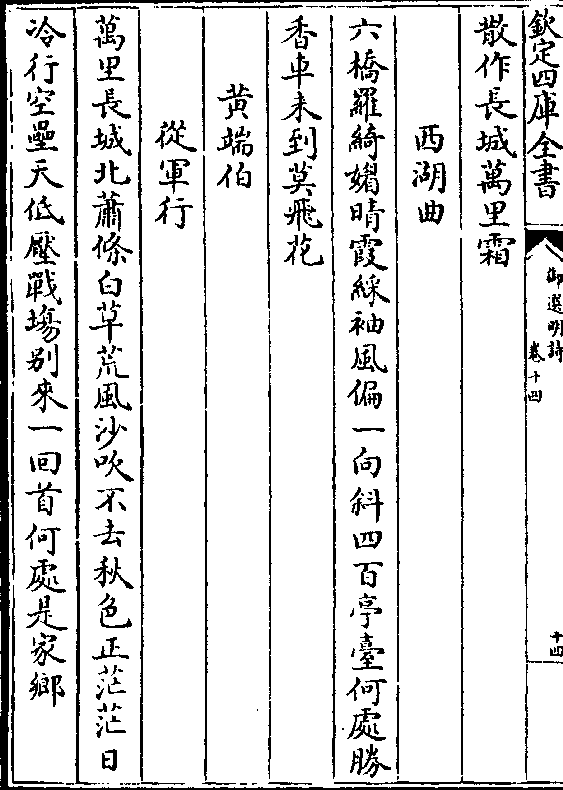 欽定四庫全書
御選明詩
卷十四
十四
散作長城萬里霜
西湖曲
六橋羅綺媚晴霞綵袖風偏一向斜四百亭臺何處勝
香車未到莫飛花
黃端伯
從軍行
萬里長城北蕭條白草荒風沙吹不去秋色正茫茫日
冷行空壘天低壓戰塲别來一回首何處是家鄉